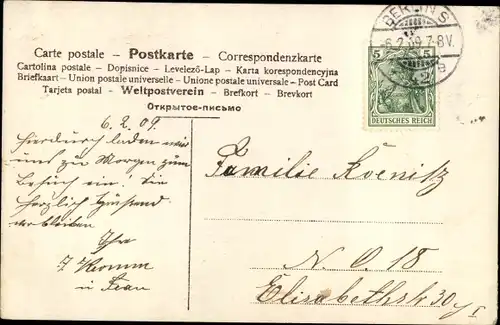 BERLIN S.
6.2.09.7-8V.
Carte postale – Postkarte – Correspondenzkarte
Cartolina postale – Dopisnice – Levelező-Lap – Karta korespondencyjna
Briefkaart - Union postale universelle - Unione postale universale - Post Card
Tarjeta postal – Weltpostverein – Brefkort - Brevkort
Открытое-письмо
5 5
DEUTSCHES REICH
6.2.09.
Hierdurch laden wir
uns zu Morgen zum
Besuch ein! Sie
herzlich grüßend
verbleiben
Ihr
F Kromm
u Frau
Familie Koenitz
N. O. 18
Elisabethstr. 30